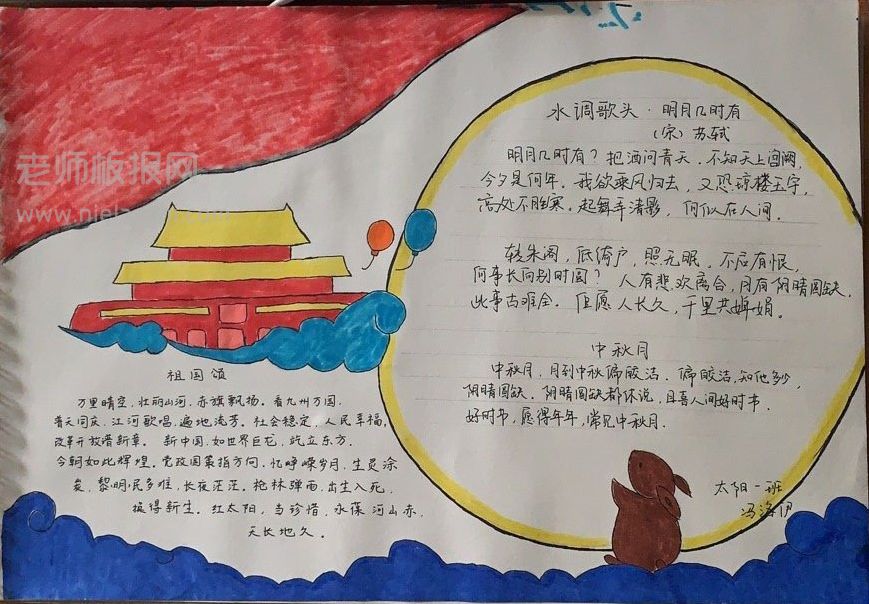 老师板报网
水调歌头·明月几时有
(宋) 苏轼
明月几时有？把酒问青天。不知天上宫阙，
今夕是何年。我欲乘风归去，又恐琼楼玉宇，
高处不胜寒。起舞弄清影，何似在人间。
转朱阁，低绮户，照无眠。不应有恨，
何事长向别时圆？人有悲欢离合，月有阴晴圆缺，
此事古难全。但愿人长久，千里共婵娟。
中秋月
中秋月，月到中秋偏皎洁。偏皎洁，知他多少，
阴晴圆缺。阴晴圆缺都休说，且喜人间好时节。
好时节，愿得年年，常见中秋月。
太阳一班
祖国颂
万里晴空，壮丽山河，赤旗飘扬。看九州万图，
普天同庆，江河歌唱，遍地流芳。社会稳定，人民幸福，
改革开放谱新章。新中国，如世界巨龙，屹立东方。
今朝如此辉煌。党政国策指方向，忆峥嵘岁月，生灵涂
炭，黎明民多难，长夜茫茫。枪林弹雨，出生入死，
换得新生。红太阳，当珍惜，永葆河山赤，
天长地久。